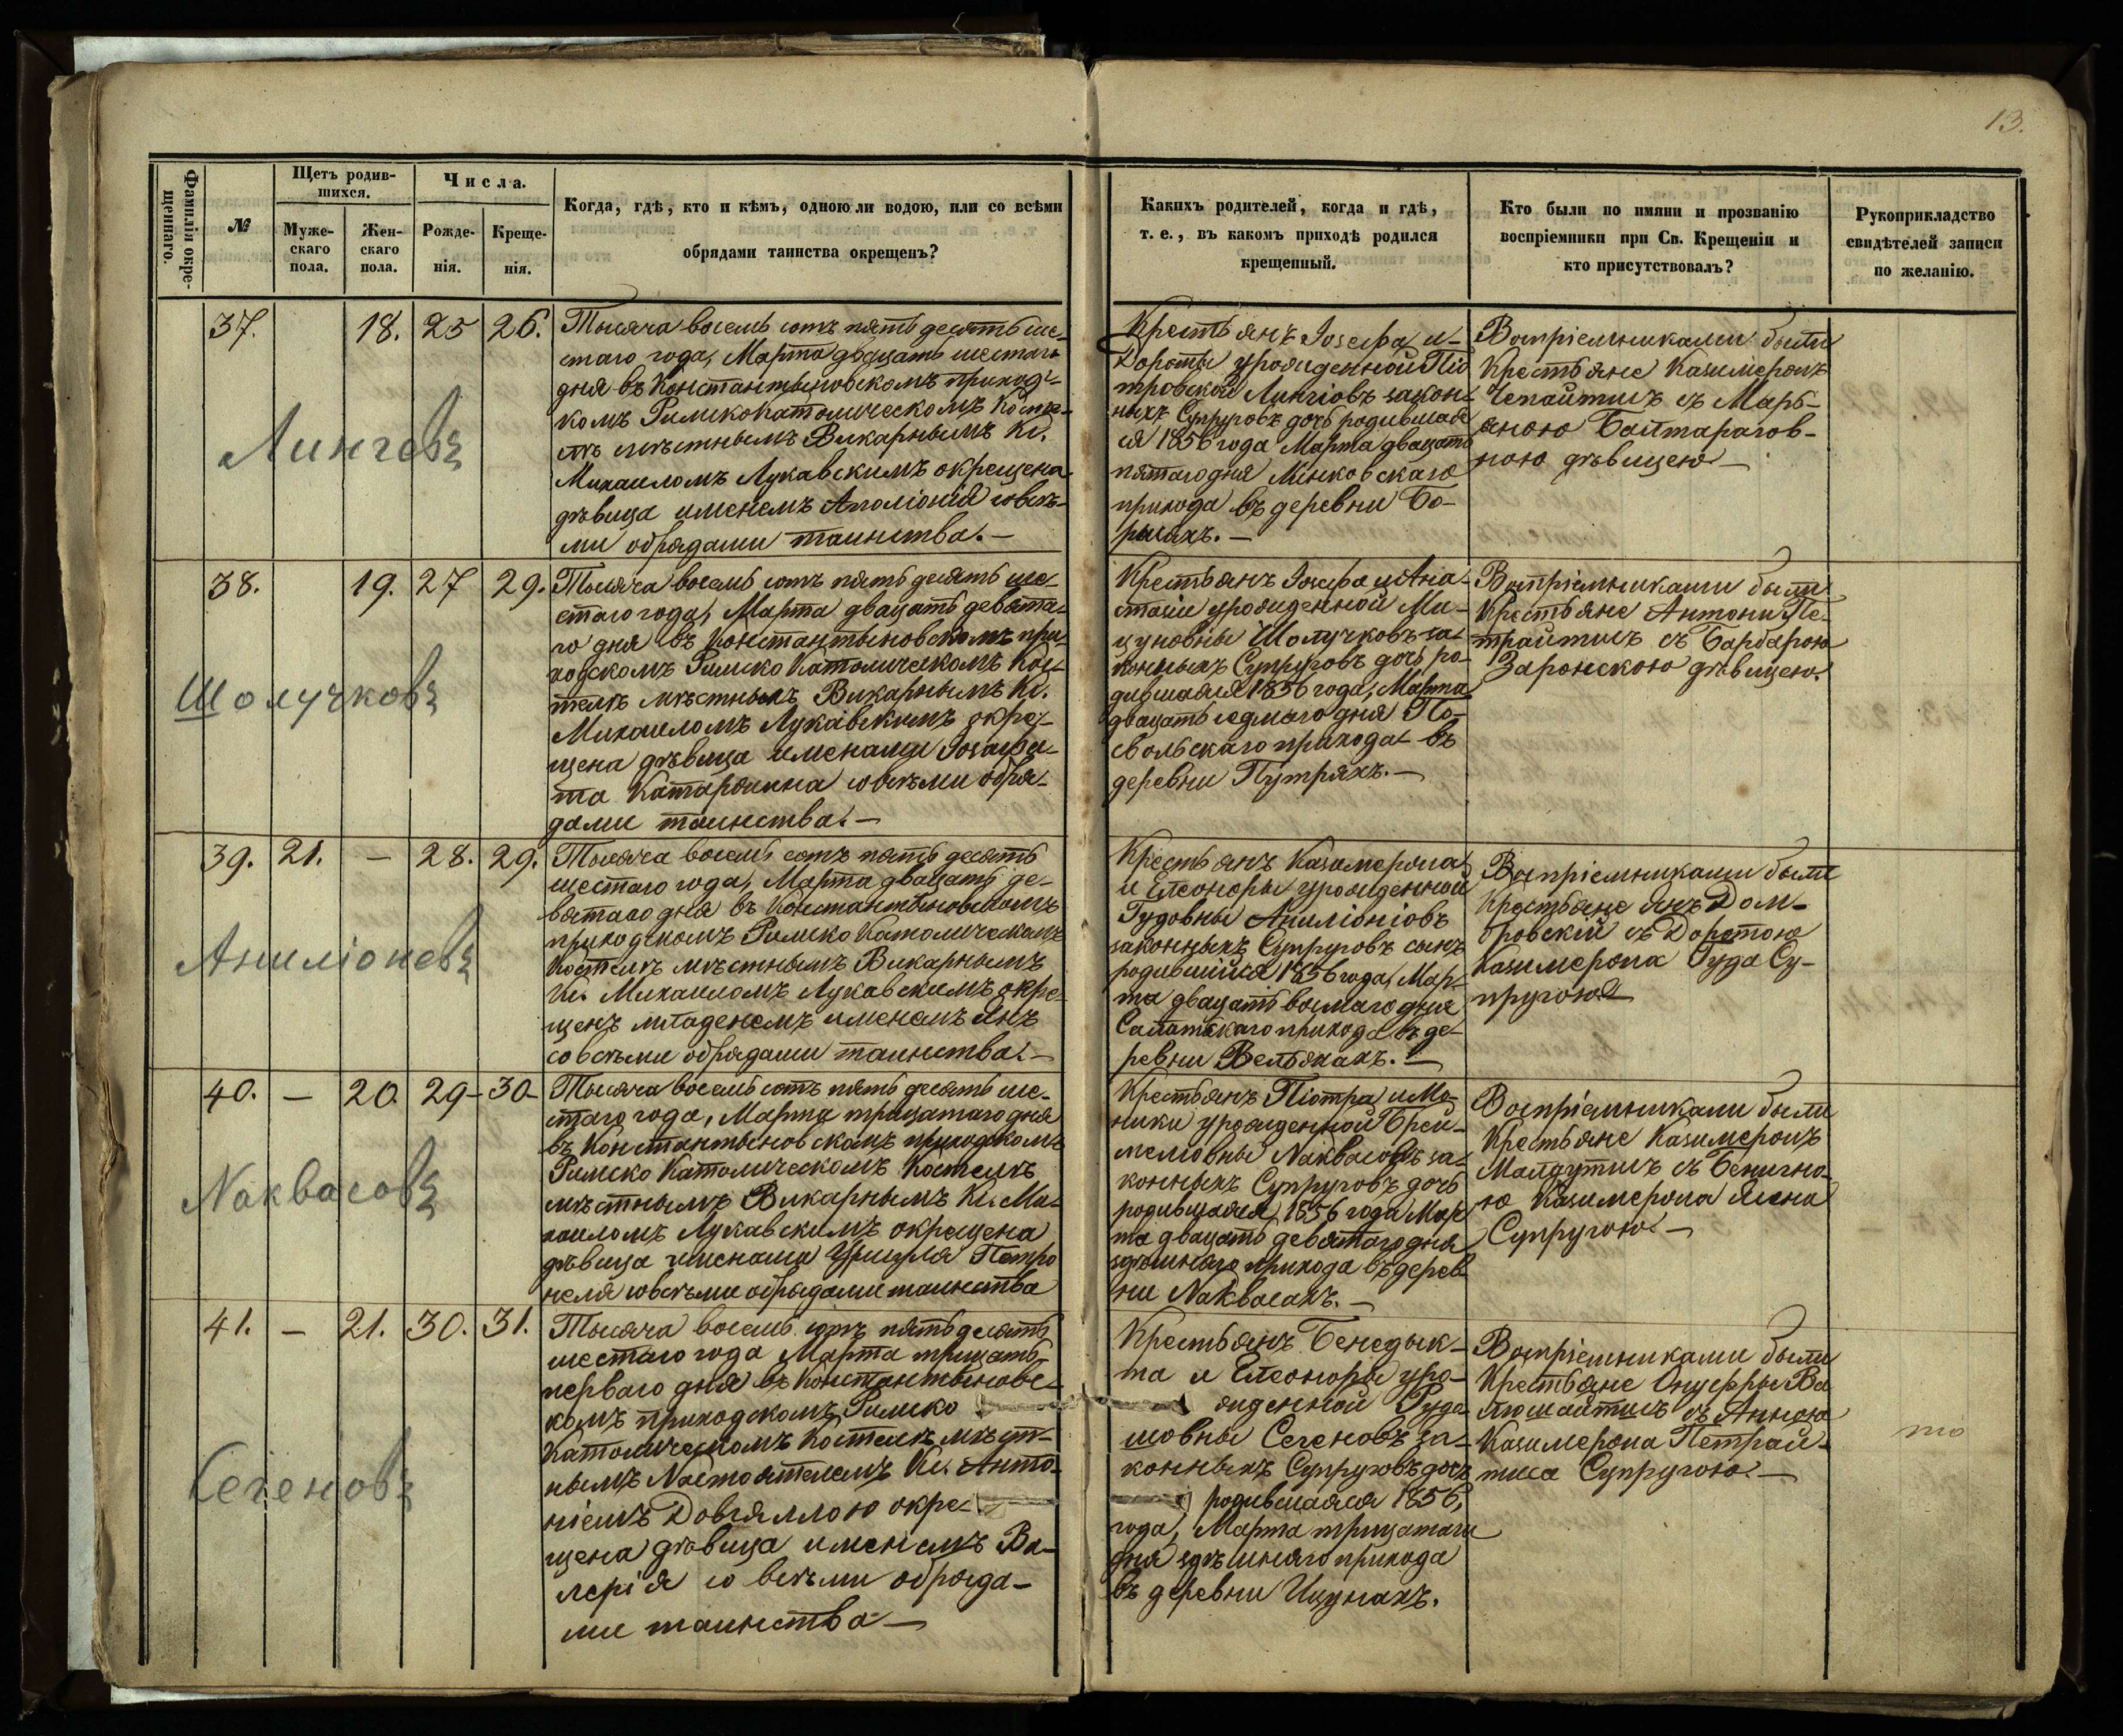 13.
Фамилія окре-
щеннаго.
№
Щетъ родив-
шихся.
Муже-
скаго
пола.
Жен-
скаго
пола.
Числа.
Рожде-
нія.
Креще-
нія.
Когда, гдѣ, кто и кѣмъ, одною ли водою, или со всѣми
обрядами таинства окрещенъ?
Какихъ родителей, когда и гдѣ,
т. е., въ какомъ приходѣ родился
крещенный.
Кто были по имяни и прозванію
воспріемники при Св. Крещеніи и
кто присутствовалъ?
Рукоприкладство
свидѣтелей записи
по желанію.
37. 18. 25 26.
Лингевъ
Тысяча восемь сотъ пять десять ше-
стаго года, Марта двацать шестаго
дня въ Константыновскомъ приход-
комъ Римско Католическомъ Косте-
лѣ мѣстнымъ Викарнымъ Кс.
Михаиломъ Лукавскимъ окрещена
дѣвица именемъ Аполіонія со всѣ-
ми обрядами таинства. —
Крестьянъ Іосефа и
Дороты урожденной Піо
тровской Лингіовъ закон-
ныхъ Супруговъ дочь родившая
ся 1856 года Марта двацать
пятаго дня
прихода въ деревни Бо-
рыахъ. —
Воспріемниками были
Крестьяне Казимеромъ
Чепайтисъ съ Марь-
яною Балтарагов-
ною дѣвицею —
38. 19. 27 29.
Шолучковъ
Тысяча восемь сотъ пять десять ше-
стаго года, Марта двацать девята-
го дня въ Константыновскомъ при-
ходскомъ Римско Католическомъ Кос-
телѣ мѣстнымъ Викарнымъ Кс.
Михаиломъ Лукавскимъ окре-
щена дѣвица именами Іозафа-
та Катарынна со всѣми обря-
дами таинства. —
Крестьянъ Іосефа и Ана-
стасіи урожденной Ми-
цуновны Шолучковъ за-
конныхъ Супруговъ дочь ро-
дившаяся 1856 года, Марта
двацать седмаго дня По-
свольскаго прихода въ
деревни Путряхъ. —
Воспріемниками были
Крестьяне Антони Пе-
трайтисъ съ Барбарою
Заронскою дѣвицею.
39. 21. — 28. 29.
Анилліоневъ
Тысяча восемь сотъ пять десять
шестаго года, Марта двацать де-
вятаго дня въ Константыновскомъ
приходскомъ Римско Католическомъ
Костелѣ мѣстнымъ Викарнымъ
Кс. Михаиломъ Лукавскимъ окре-
щенъ младенемъ именемъ Янъ
со всѣми обрядами таинства. —
Крестьянъ Казимерона
и Елеоноры урожденной
Гудовны Анилліоніовъ
законныхъ Супруговъ сынъ
родившійся 1856 года, Мар-
та двацать восмаго дня
Салатскаго прихода въ де-
ревни Вельжахъ. —
Воспріемниками были
Крестьяне Янъ Дом-
бровскій съ Доротою
Казимерона Гуда Су-
пругою —
40. — 20. 29 - 30 -
Наквасовъ
Тысяча восемь сотъ пять десять ше-
стаго года, Марта трицатаго дня
въ Константыновскомъ приходскомъ
Римско Католическомъ Костелѣ
мѣстнымъ Викарнымъ Кс. Ми-
хаиломъ Лукавскимъ окрещена
дѣвица именами Уршуля Петро
неля со всѣми обрядами таинства
Крестьянъ Піотра и Мо-
ники урожденной
Наквасовъ за-
конныхъ Супруговъ дочь
родившаяся 1856 года Мар
та двацать девятаго дня
здѣшняго прихода въ дерев
ни Наквасахъ. —
Воспріемниками были
Крестьяне Казимеромъ
Малдутисъ съ Бенигно-
ю Казимерона Ясена
Супругою. —
41. — 21. 30. 31.
Сегеновъ
Тысяча восемь сотъ пять десять
шестаго года Марта трицать
перваго дня въ Константыновс-
комъ приходскомъ Римско
Католическомъ Костелѣ мѣст-
нымъ Настоятелемъ Кс. Анто-
ніемъ Довгялло ю окре-
щена дѣвица именемъ Ва-
лерія со всѣми обряда-
ми таинства —
Крестьянъ Бенедык-
та и Елеоноры уро-
жденной Руда-
шовны Сегеновъ за-
конныхъ Супруговъ дочь
родившаяся 1856,
года, Марта трицатаго
дня здѣшняго прихода
въ деревни Ицунахъ.
Воспріемниками были
Крестьяне Онуфры Ва
люшайтисъ съ Анною
Казимерона Петрай-
тиса Супругою. —